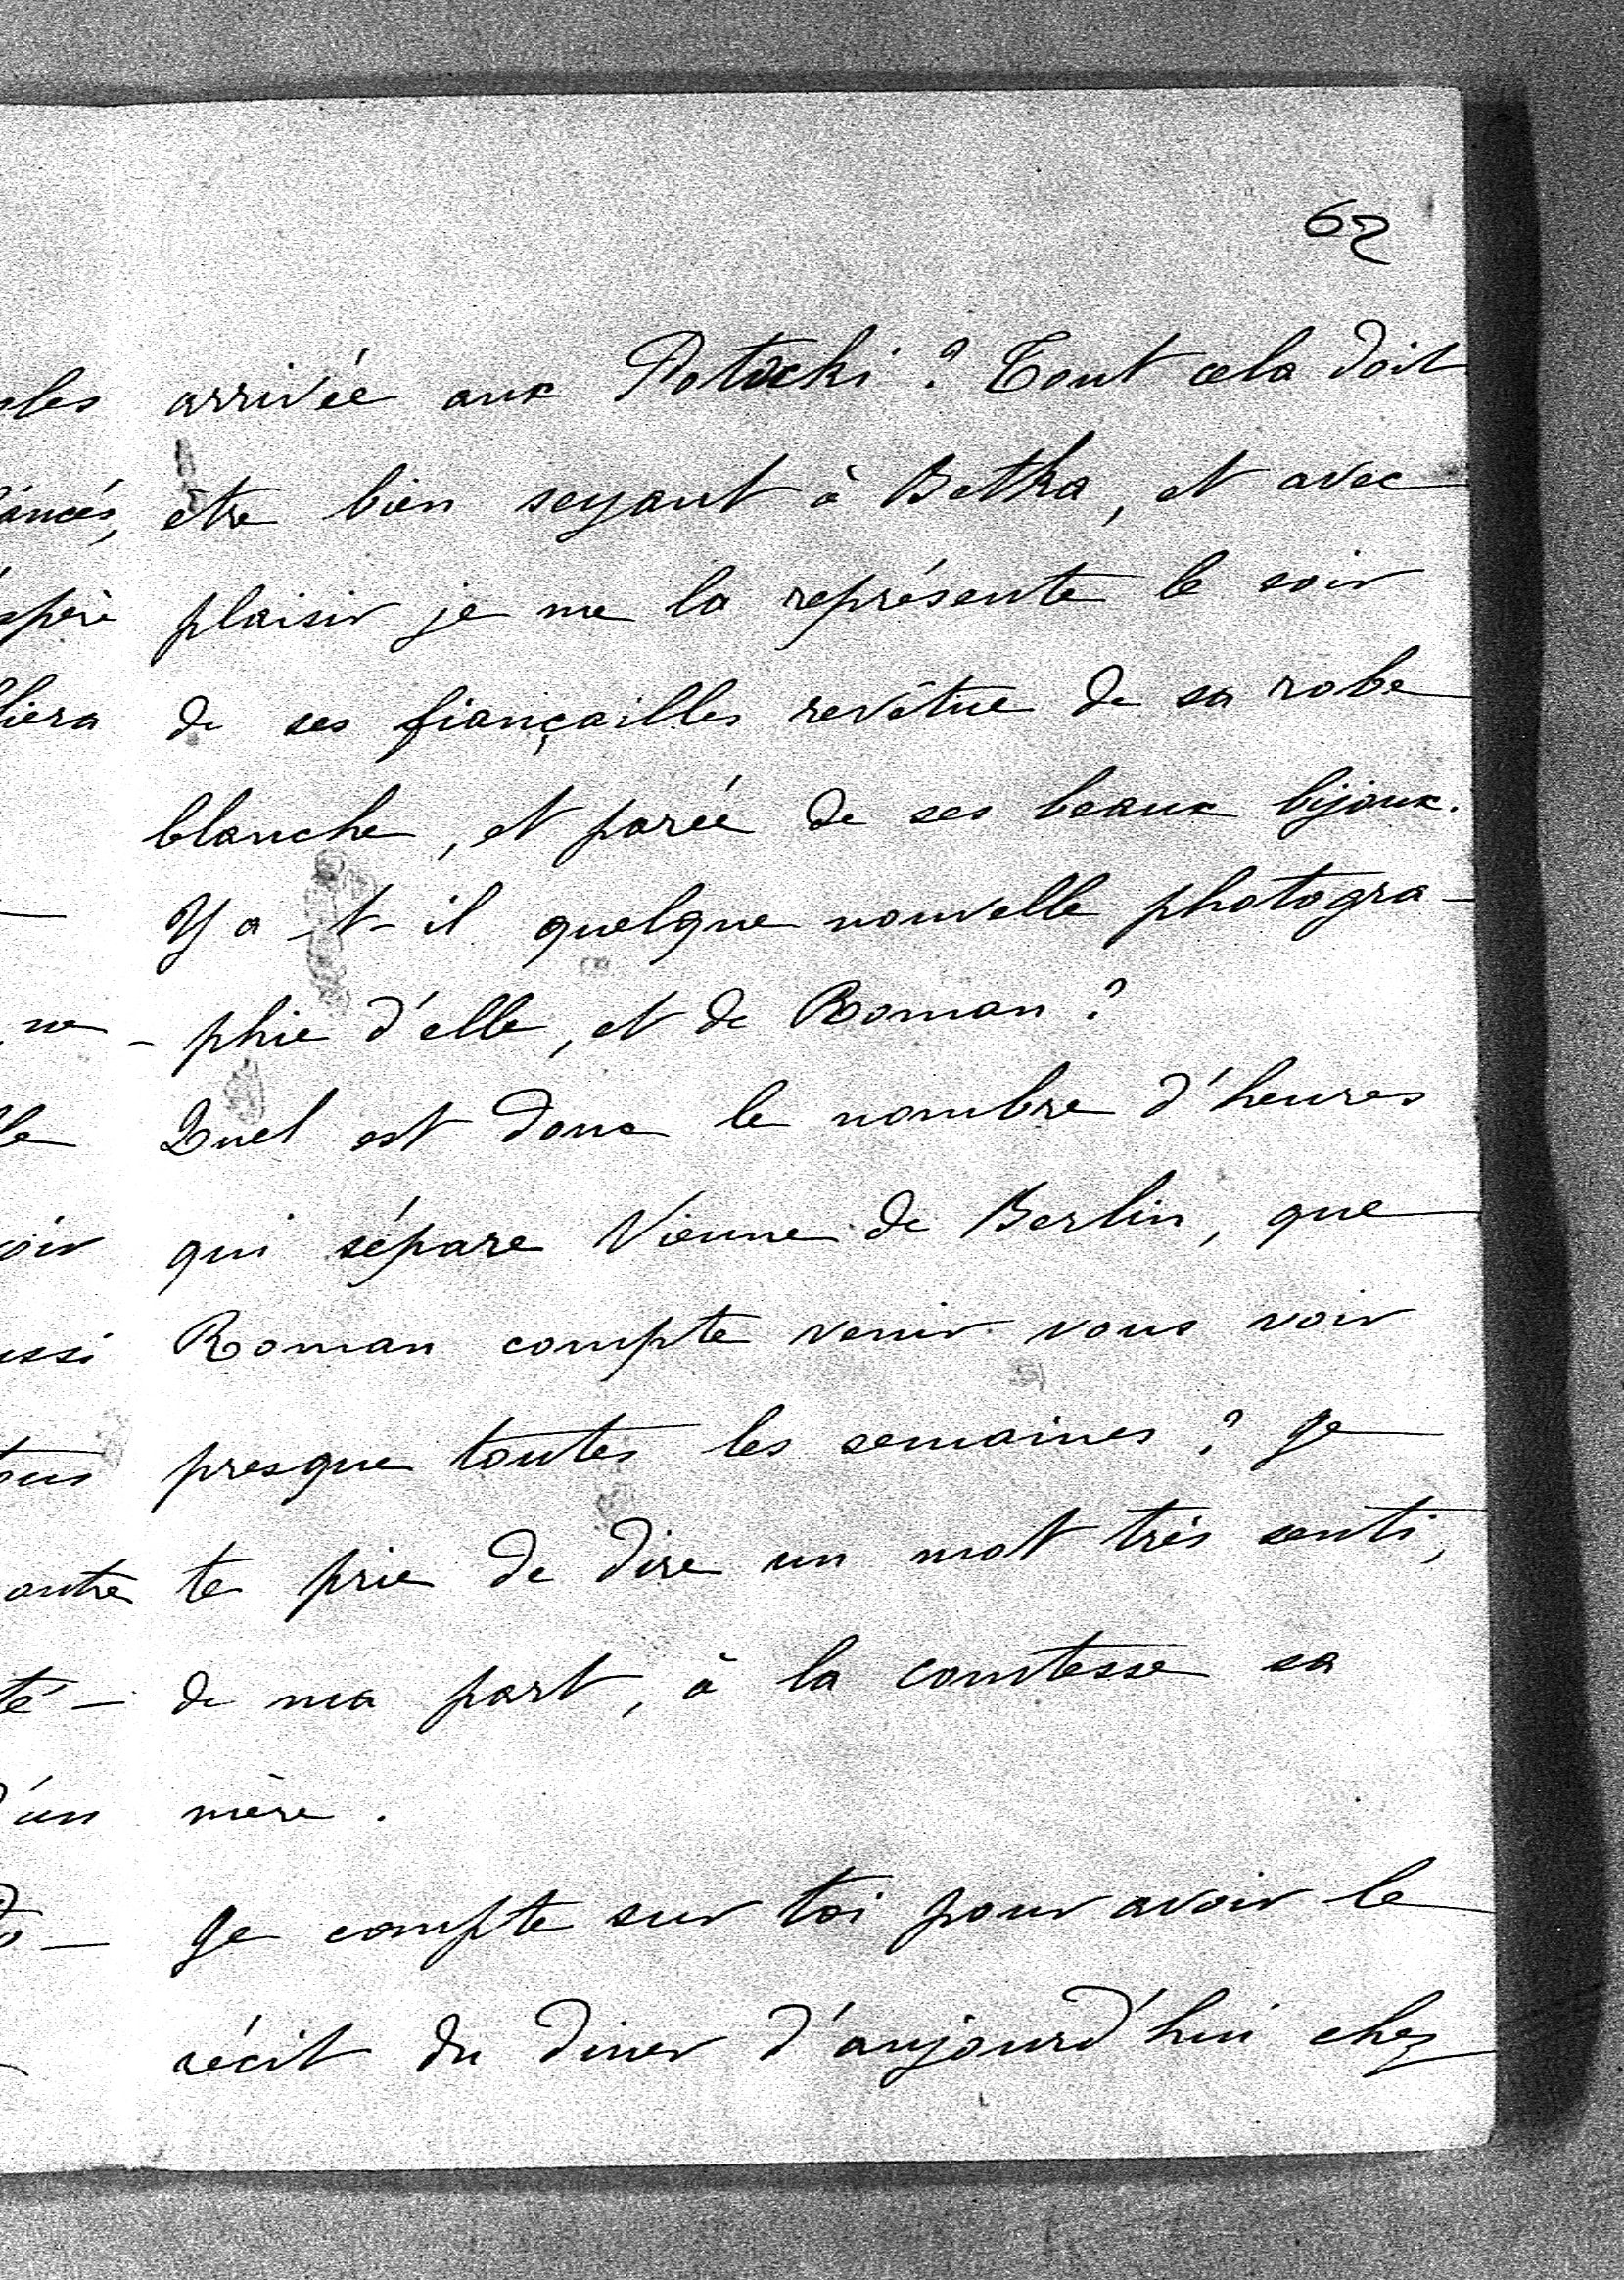 62
arrivée aux Potocki ? Tout cela doit
être bien seyant à Betka, et avec
plaisir je me la représente le soir
de ses fiançailles revêtue de sa robe
blanche, et parée de ses beaux bijoux.
Y a-t-il quelque nouvelle photogra-
-phie d'elle, et de Roman ?
Quel est donc le nombre d'heures
qui sépare Vienne de Berlin, que
Roman compte venir vous voir
presque toutes les semaines ? Je
te prie de dire un mot très senti,
de ma part, à la comtesse sa
mère.
Je compte sur toi pour avoir le
récit du diner d'aujourd'hui chez